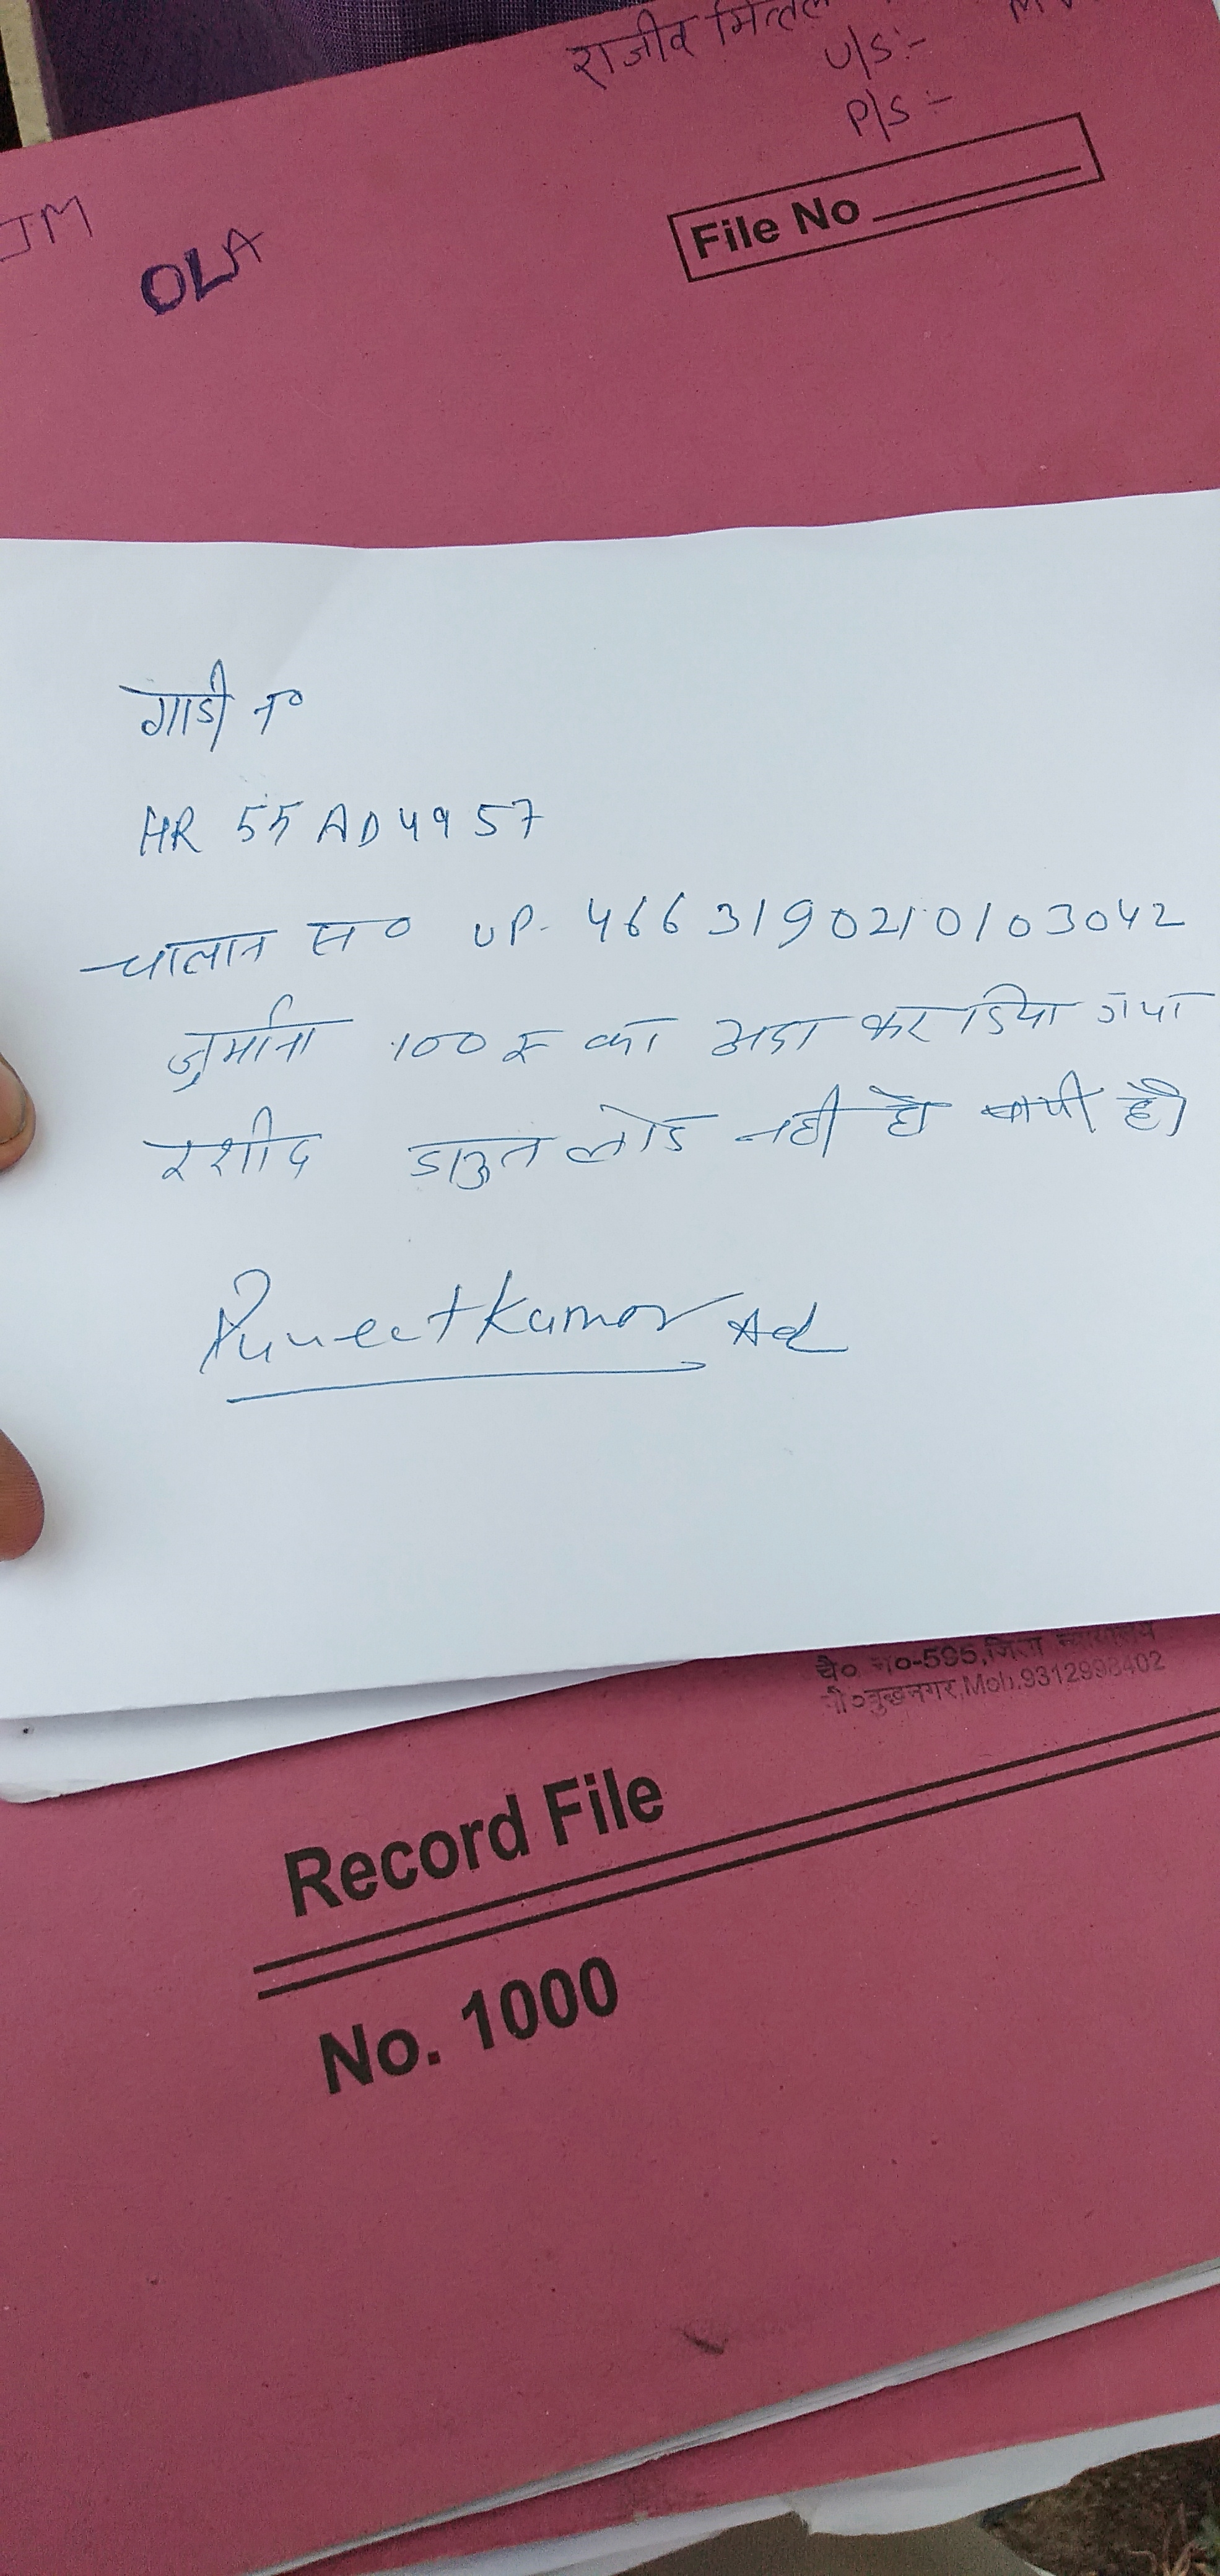 राजीव मित्तल
U/S:-
P/S:-
JM
OLA
File No
गाडी न०
HR 55 AD 4957
चालान स० UP- 4663190210103042
जुर्माना 100 रू का अदा कर दिया गया
रशीद डाउन लोड नही हो पायी है।
Puneet Kumar Ad
चै० न०-595,जिला न्यायालय
गौ०बुद्धनगर,Mob.9312998402
Record File
No. 1000